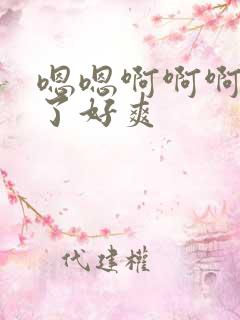 嗯嗯啊啊啊
了好爽
代建權